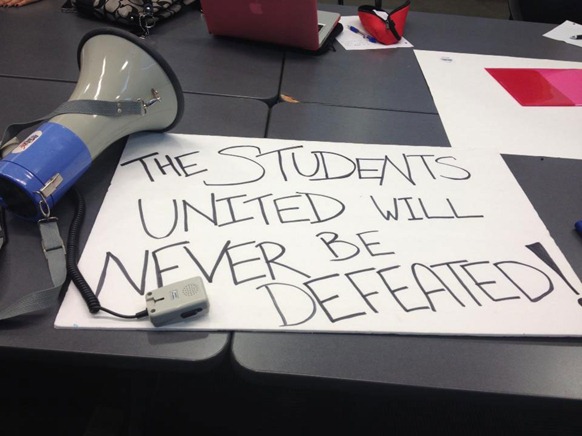 THE STUDENTS
UNITED WILL
NEVER BE
DEFEATED!